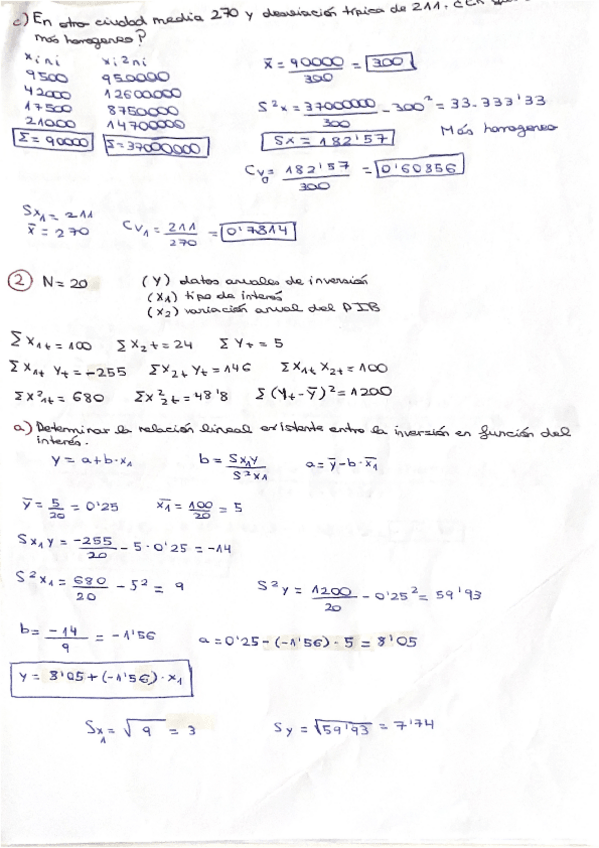 c) En otra ciudad media 270 y desviación típica de 211.
más homogeneo?
xini xi2ni
9500 950000
42000 12600000
17500 8750000
21000 14700000
Σ=90000 Σ=37000000
x̄ = 90000/300 = 300
S²x = 37000000/300 - 300² = 33.333'33
Sx = 182'57
Más homogeneo
CV0 = 182'57/300 = 0'60856
Sx1 = 211
x̄ = 270
CV1 = 211/270 = 0'7814
2 N = 20 (Y) datos anuales de inversión
(X1) tipo de interés
(X2) variación anual del PIB
ΣX1t = 100 ΣX2t = 24 ΣYt = 5
ΣX1t Yt = -255 ΣX2t Yt = 146 ΣX1t X2t = 100
ΣX²1t = 680 ΣX²2t = 48'8 Σ(Yt-Ȳ)² = 1200
a) Determinar la relación lineal existente entre la inversión en función del
interés.
y = a+b·x1 b = Sx1y/S²x1 a = ȳ-b·x̄1
ȳ = 5/20 = 0'25 x̄1 = 100/20 = 5
Sx1y = -255/20 - 5·0'25 = -14
S²x1 = 680/20 - 5² = 9 S²y = 1200/20 - 0'25² = 59'93
b = -14/9 = -1'56 a = 0'25-(-1'56)·5 = 8'05
y = 8'05+(-1'56)·x1
Sx1 = √9 = 3 Sy = √59'93 = 7'74